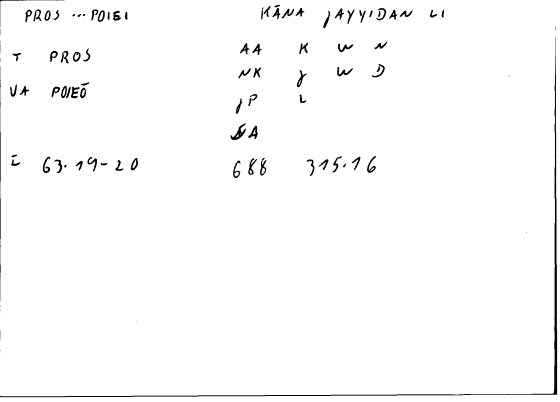 PROS ... POIEI KĀNA ǧAYYIDAN LI
AA K W N
T PROS
NK ǧ W D
VA POIEŌ
ǧP L
AA
Ī 63.19-20 688 315.16